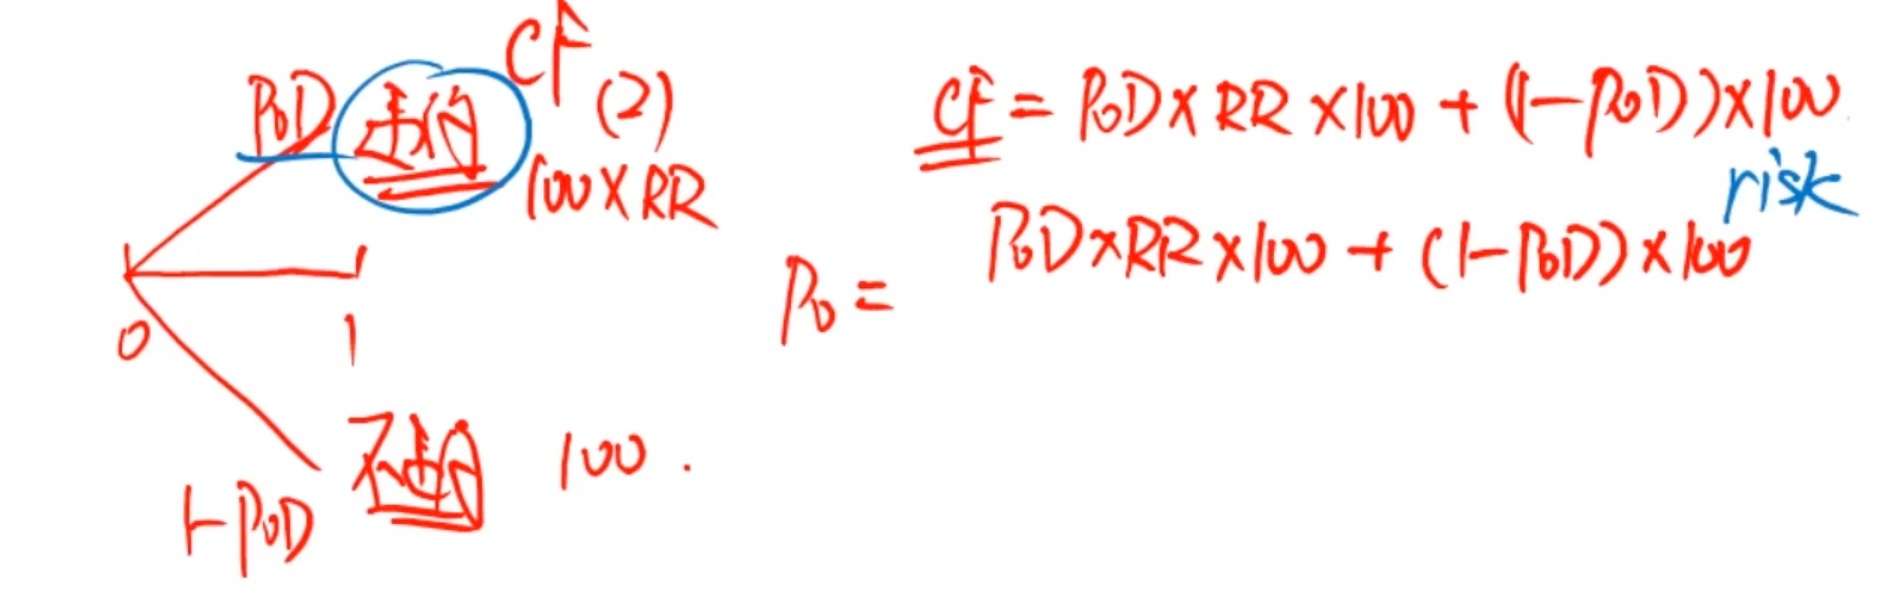 CF
PoD 违约 (2)
100×RR
0 1
1-PoD 不违约 100.
CF = PoD×RR×100 + (1-PoD)×100
risk
P₀ = PoD×RR×100 + (1-PoD)×100